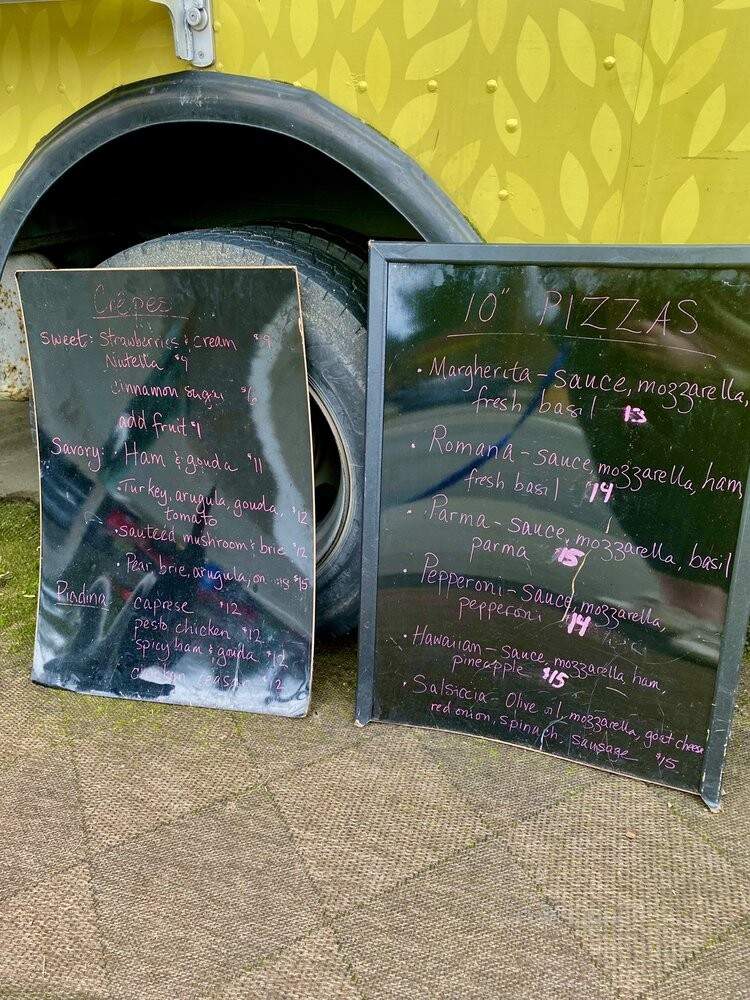 Crêpes
Sweet: Strawberries & cream $9
Nutella $9
cinnamon sugar $6
add fruit $1
Savory: • Ham & gouda $11
• Turkey, arugula, gouda, $12
tomato
• Sauteed mushroom & brie $12
• Pear, brie, arugula, $15
Piadina caprese $12
pesto chicken $12
spicy ham & gouda $12
chicken
10" PIZZAS
• Margherita - sauce, mozzarella,
fresh basil 13
• Romana - sauce, mozzarella, ham,
fresh basil 14
• Parma - sauce, mozzarella, basil
parma $15
• Pepperoni - sauce, mozzarella,
pepperoni $14
• Hawaiian - sauce, mozzarella, ham,
pineapple $15
• Salsiccia - Olive oil, mozzarella, goat cheese
red onion, spinach, sausage $15